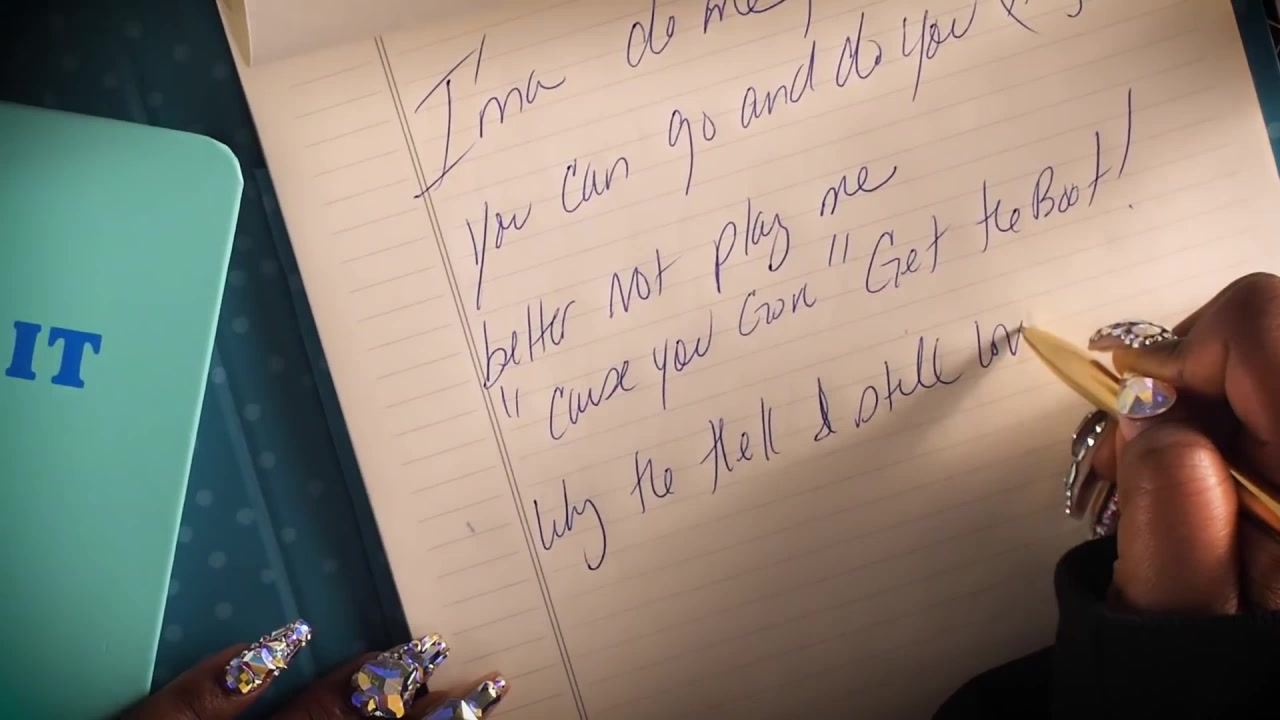 I'ma do me,
you can go and do you
better Not play me
"cause you Gon" Get the Boot!
Why the Hell I still lov
IT